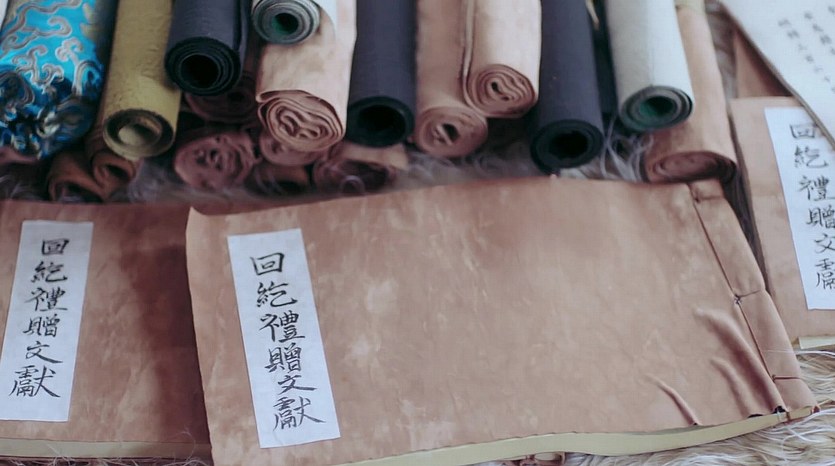 回紇禮贈文獻
回紇禮贈文獻
回紇禮贈文獻